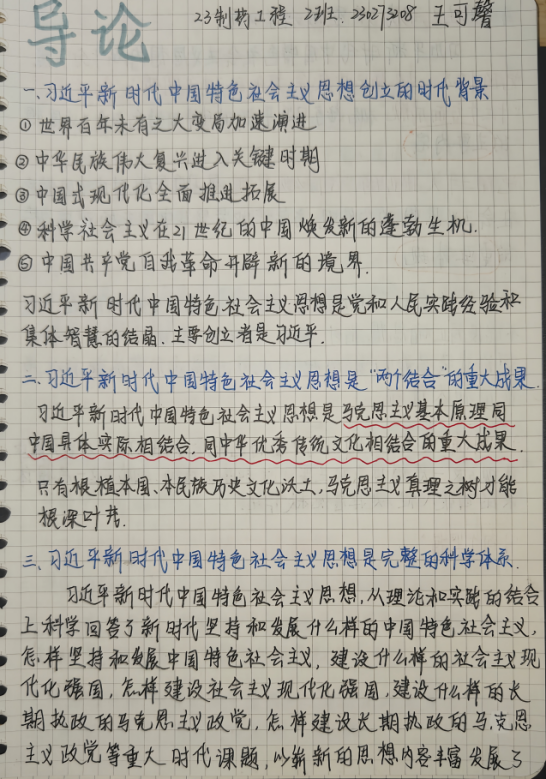 导论
23制药工程 2班. 230273208 王可馨
一.习近平新时代中国特色社会主义思想创立的时代背景
①世界百年未有之大变局加速演进
②中华民族伟大复兴进入关键时期
③中国式现代化全面推进拓展
④科学社会主义在21世纪的中国焕发新的蓬勃生机.
⑤中国共产党自我革命开辟新的境界.
习近平新时代中国特色社会主义思想是党和人民实践经验和
集体智慧的结晶.主要创立者是习近平.
二.习近平新时代中国特色社会主义思想是"两个结合"的重大成果.
习近平新时代中国特色社会主义思想是马克思主义基本原理同
中国具体实际相结合.同中华优秀传统文化相结合的重大成果.
只有根植本国、本民族历史文化沃土,马克思主义真理之树才能
根深叶茂.
三、习近平新时代中国特色社会主义思想是完整的科学体系.
习近平新时代中国特色社会主义思想,从理论和实践的结合
上科学回答了新时代坚持和发展什么样的中国特色社会主义,
怎样坚持和发展中国特色社会主义,建设什么样的社会主义现
代化强国,怎样建设社会主义现代化强国,建设什么样的长
期执政的马克思主义政党,怎样建设长期执政的马克思
主义政党等重大时代课题,以崭新的思想内容丰富发展了